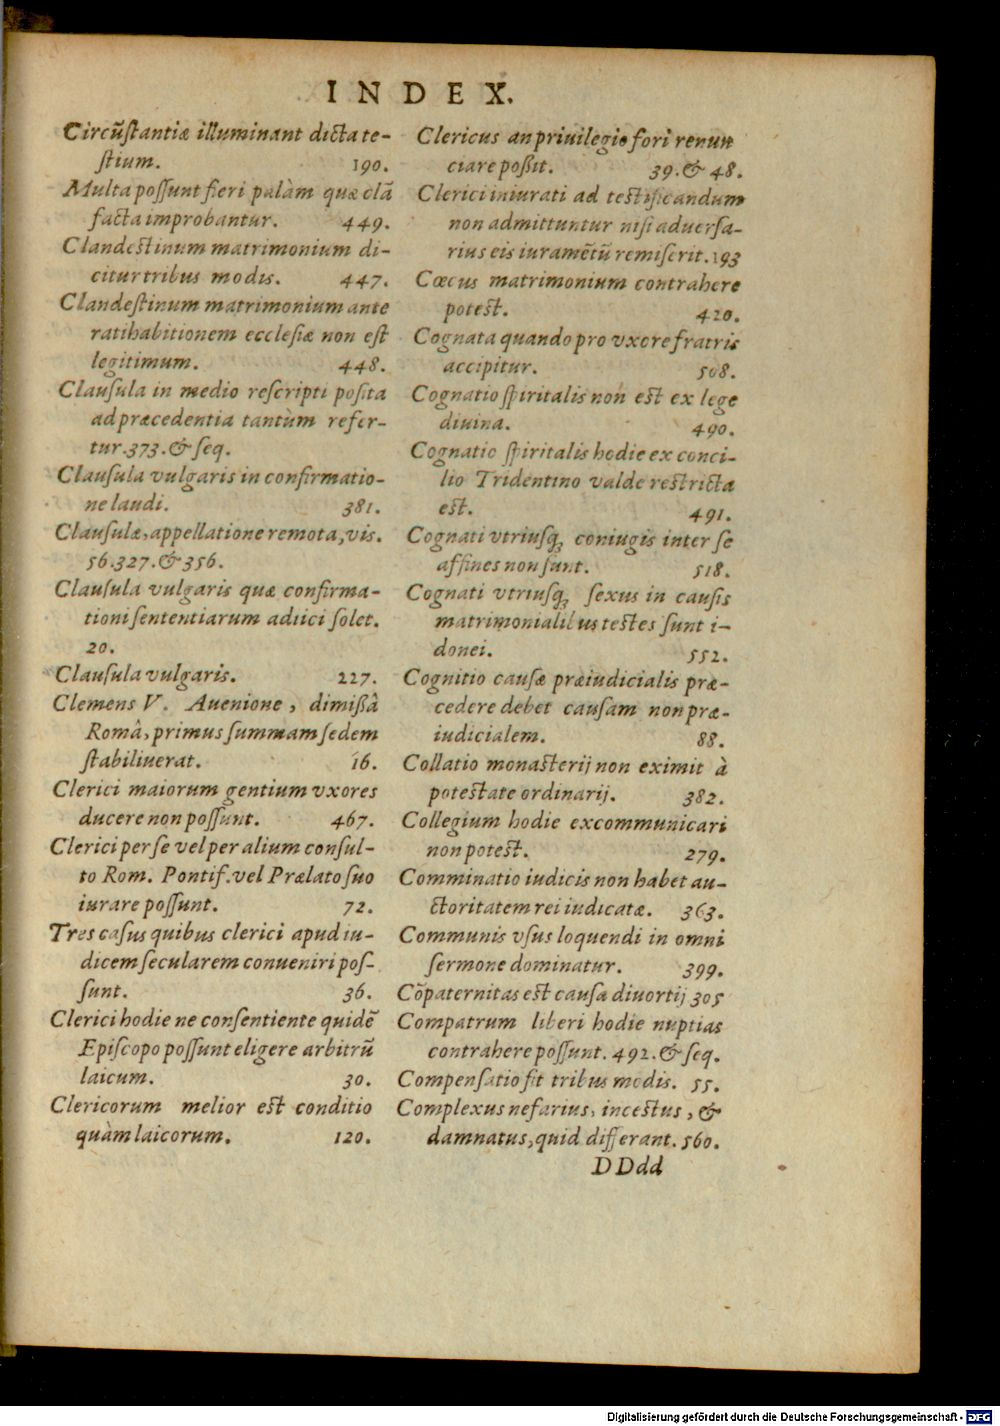 INDEX.
Circũſtantiæ illuminant dicta te-
ſtium. 190.
Multa poſſunt fieri palàm quæ clã
facta improbantur. 449.
Clandestinum matrimonium di-
citur tribus modis. 447.
Clandeſtinum matrimonium ante
ratihabitionem eccleſiæ non eſt
legitimum. 448.
Clauſula in medio reſcripti poſita
ad præcedentia tantùm refer-
tur. 373. & ſeq.
Clauſula vulgaris in confirmatio-
ne laudi. 381.
Clauſulæ, appellatione remota, vis.
56. 327. & 356.
Clauſula vulgaris quæ confirma-
tioni ſententiarum adiici ſolet.
20.
Clauſula vulgaris. 227.
Clemens V. Auenione, dimiſsâ
Româ, primus ſummam ſedem
ſtabiliuerat. 16.
Clerici maiorum gentium vxores
ducere non poſſunt. 467.
Clerici per ſe vel per alium conſul-
to Rom. Pontif. vel Prælato ſuo
iurare poſſunt. 72.
Tres caſus quibus clerici apud iu-
dicem ſecularem conueniri poſ-
ſunt. 36.
Clerici hodie ne conſentiente quidẽ
Epiſcopo poſſunt eligere arbitrũ
laicum. 30.
Clericorum melior est conditio
quàm laicorum. 120.
Clericus an priuilegio fori renun
ciare poſsit. 39. & 48.
Clerici iniurati ad testificandum
non admittuntur niſi aduerſa-
rius eis iuramẽtũ remiſerit. 193
Cœcus matrimonium contrahere
potest. 420.
Cognata quando pro vxore fratris
accipitur. 508.
Cognatio ſpiritalis non est ex lege
diuina. 490.
Cognatio ſpiritalis hodie ex conci-
lio Tridentino valde restricta
est. 491.
Cognati vtriuſq; coniugis inter ſe
affines non ſunt. 518.
Cognati vtriuſq; ſexus in cauſis
matrimonialibus testes ſunt i-
donei. 552.
Cognitio cauſæ præiudicialis præ-
cedere debet cauſam non præ-
iudicialem. 88.
Collatio monasterij non eximit à
potestate ordinarij. 382.
Collegium hodie excommunicari
non potest. 279.
Comminatio iudicis non habet au-
ctoritatem rei iudicatæ. 363.
Communis vſus loquendi in omni
ſermone dominatur. 399.
Cõpaternitas est cauſa diuortij 305
Compatrum liberi hodie nuptias
contrahere poſſunt. 492. & ſeq.
Compenſatio fit tribus modis. 55.
Complexus nefarius, incestus, &
damnatus, quid differant. 560.
DDdd
Digitalisierung gefördert durch die Deutsche Forschungsgemeinschaft - DFG